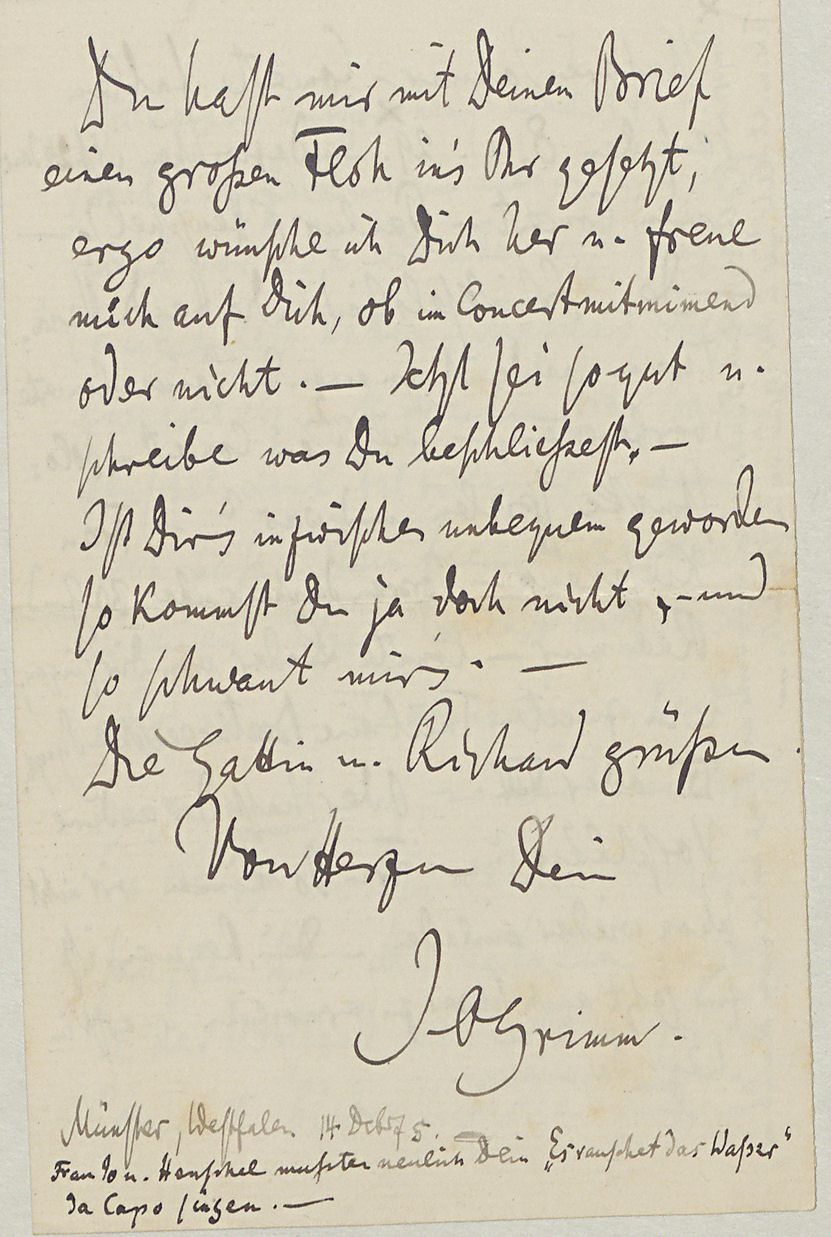 Du hast mir mit Deinem Brief
einen großen Floh in's Ohr gesetzt,
ergo wünsche ich Dich her u. freue
mich auf Dich, ob im Concert mitmimend
oder nicht. — Jetzt sei so gut u.
schreibe was Du beschließest. —
Ist Dir's inzwischen unbequem geworden
so kommst Du ja doch nicht, – und
so schwant mir's. —
Die Gattin u. Richard grüßen.
Von Herzen Dein
JOGrimm.
Münster, Westfalen 14 Dcbr 75.
Frau Jo u. Henschel mußten neulich Dein „Es rauschet das Waßer“
da Capo singen. —